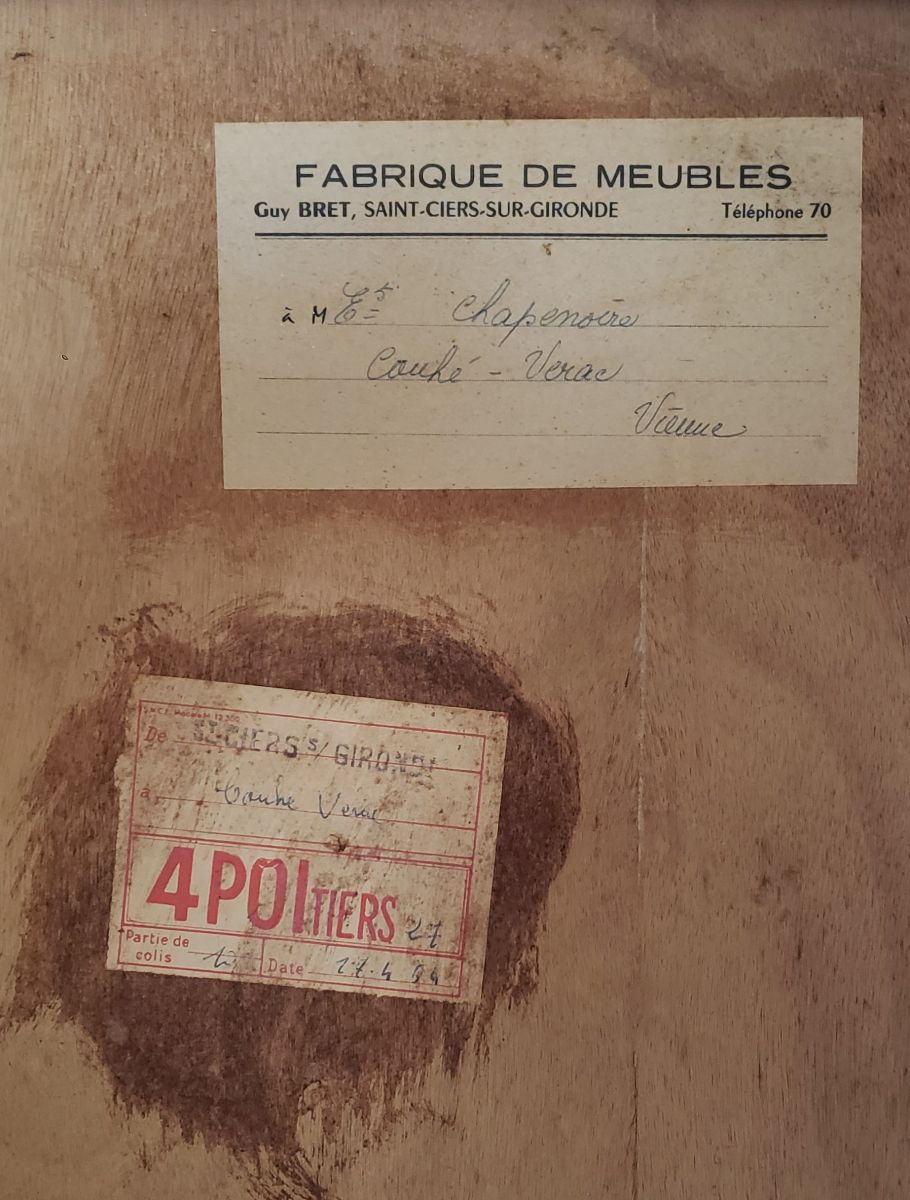 FABRIQUE DE MEUBLES
Guy BRET, SAINT-CIERS-SUR-GIRONDE Téléphone 70
à M Ets Chapenoire
Couhé - Verac
Vienne
De ST-CIERS S/ GIRONDE
à Couhe Verac
4 POITIERS 27
Partie de
colis
Date